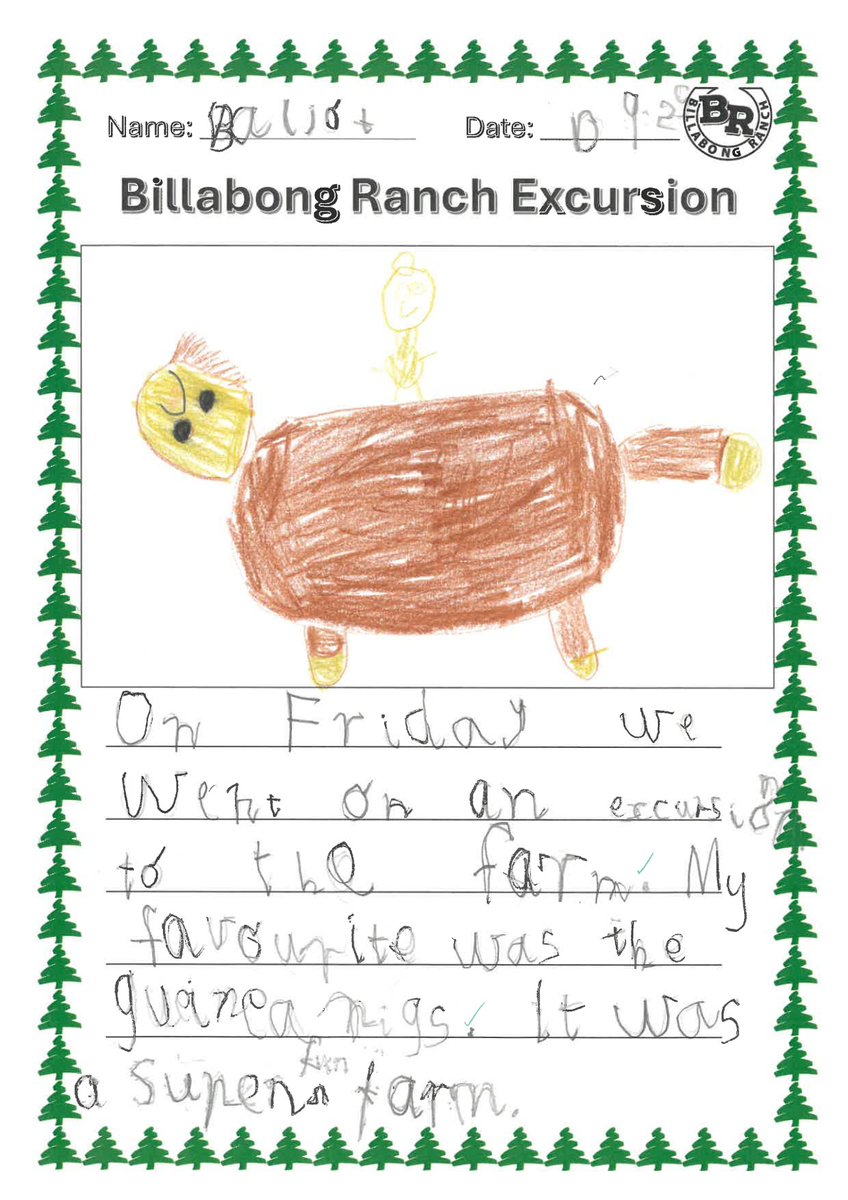 Name:
Date:
BR
BILLABONG RANCH
Billabong Ranch Excursion
On Friday we
went on an excursion
to the farm. My
favourite was the
guinea pigs. It was
fun
a super farm.